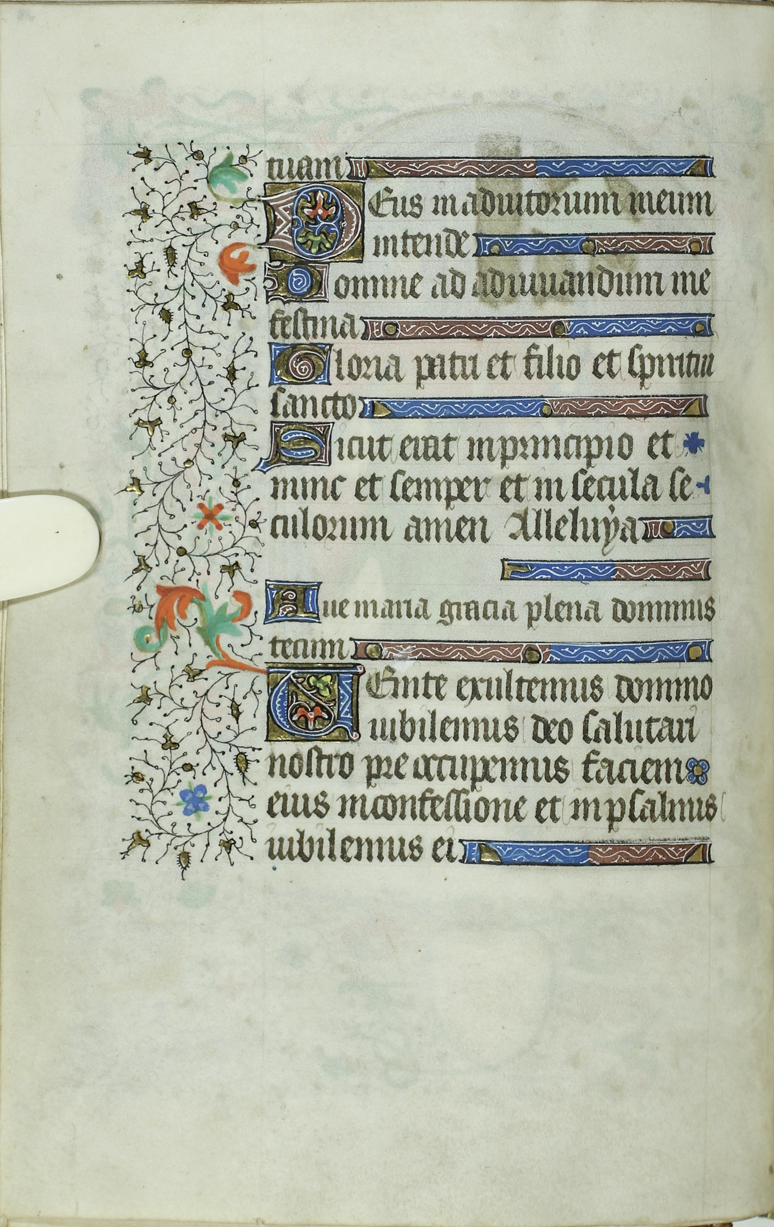 tuam
Deus in adiutorium meum
intende
Domine ad adiuuandum me
festina
Gloria patri et filio et spiritui
sancto
Sicut erat in principio et
nunc et semper et in secula se
culorum amen Alleluya
Aue maria gracia plena dominus
tecum
Uenite exultemus domino
iubilemus deo salutari
nostro pre occupemus faciem
eius in confessione et in psalmis
iubilemus ei